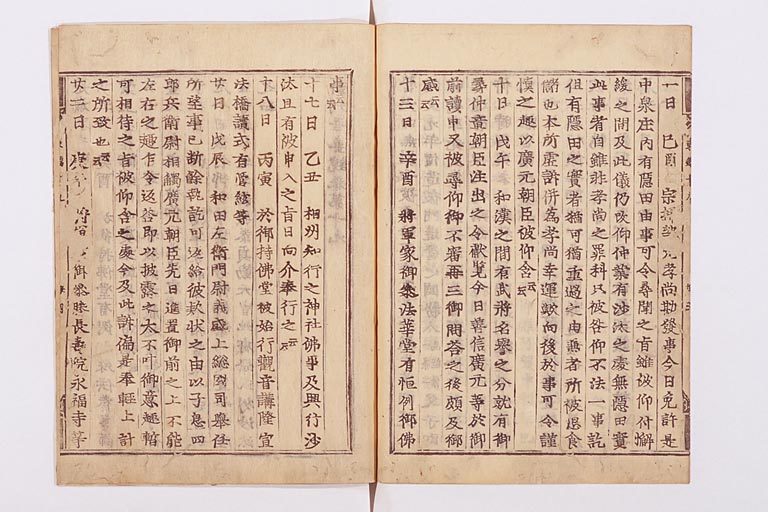 一日 己酉 宗 孝尚勘發事今日免許是
中泉庄内有隱田由事可令尋聞之旨雖被仰付懈
緩之間及此儀仍改仰仲業有沙汰之處無隱田實
此事者自雖非孝尚之罪科只被咎仰不法一事訖
但有隱田之實者猶可猶重過之由無者所被退食
儲也本所庶許併爲孝尚幸運歟向後於事可令謹
慎之趣以廣元朝臣被仰含云云
十日 戊午 和漢之間有武將名譽之分就有御
尋仲章朝臣注出之令獻覽今日善信廣元等於御
前讀申又被尋仰御不審再三御問答之後頗及御
感云云
十三日 辛酉 將軍家御參法華堂有恒例御佛
事
十七日 乙丑 相州知行之神社佛事及興行沙
汰且有被申入之旨日向介奉行之云云
十八日 丙寅 於御持佛堂被始行觀音講隆宣
法橋讀式有管絃等
廿日 戊辰 和田左衛門尉義盛上総國司舉任
所望事已斷餘執訖可返給彼款状之由以子息四
郎兵衛尉相觸廣元朝臣先日進置御前之上不能
左右之趣乍令返答即以披露之太不叶御意趣暫
可相待之旨被仰含之處今及此訴偏是奉輕上計
之所致也云云
廿二日 御參 長壽院永福寺等